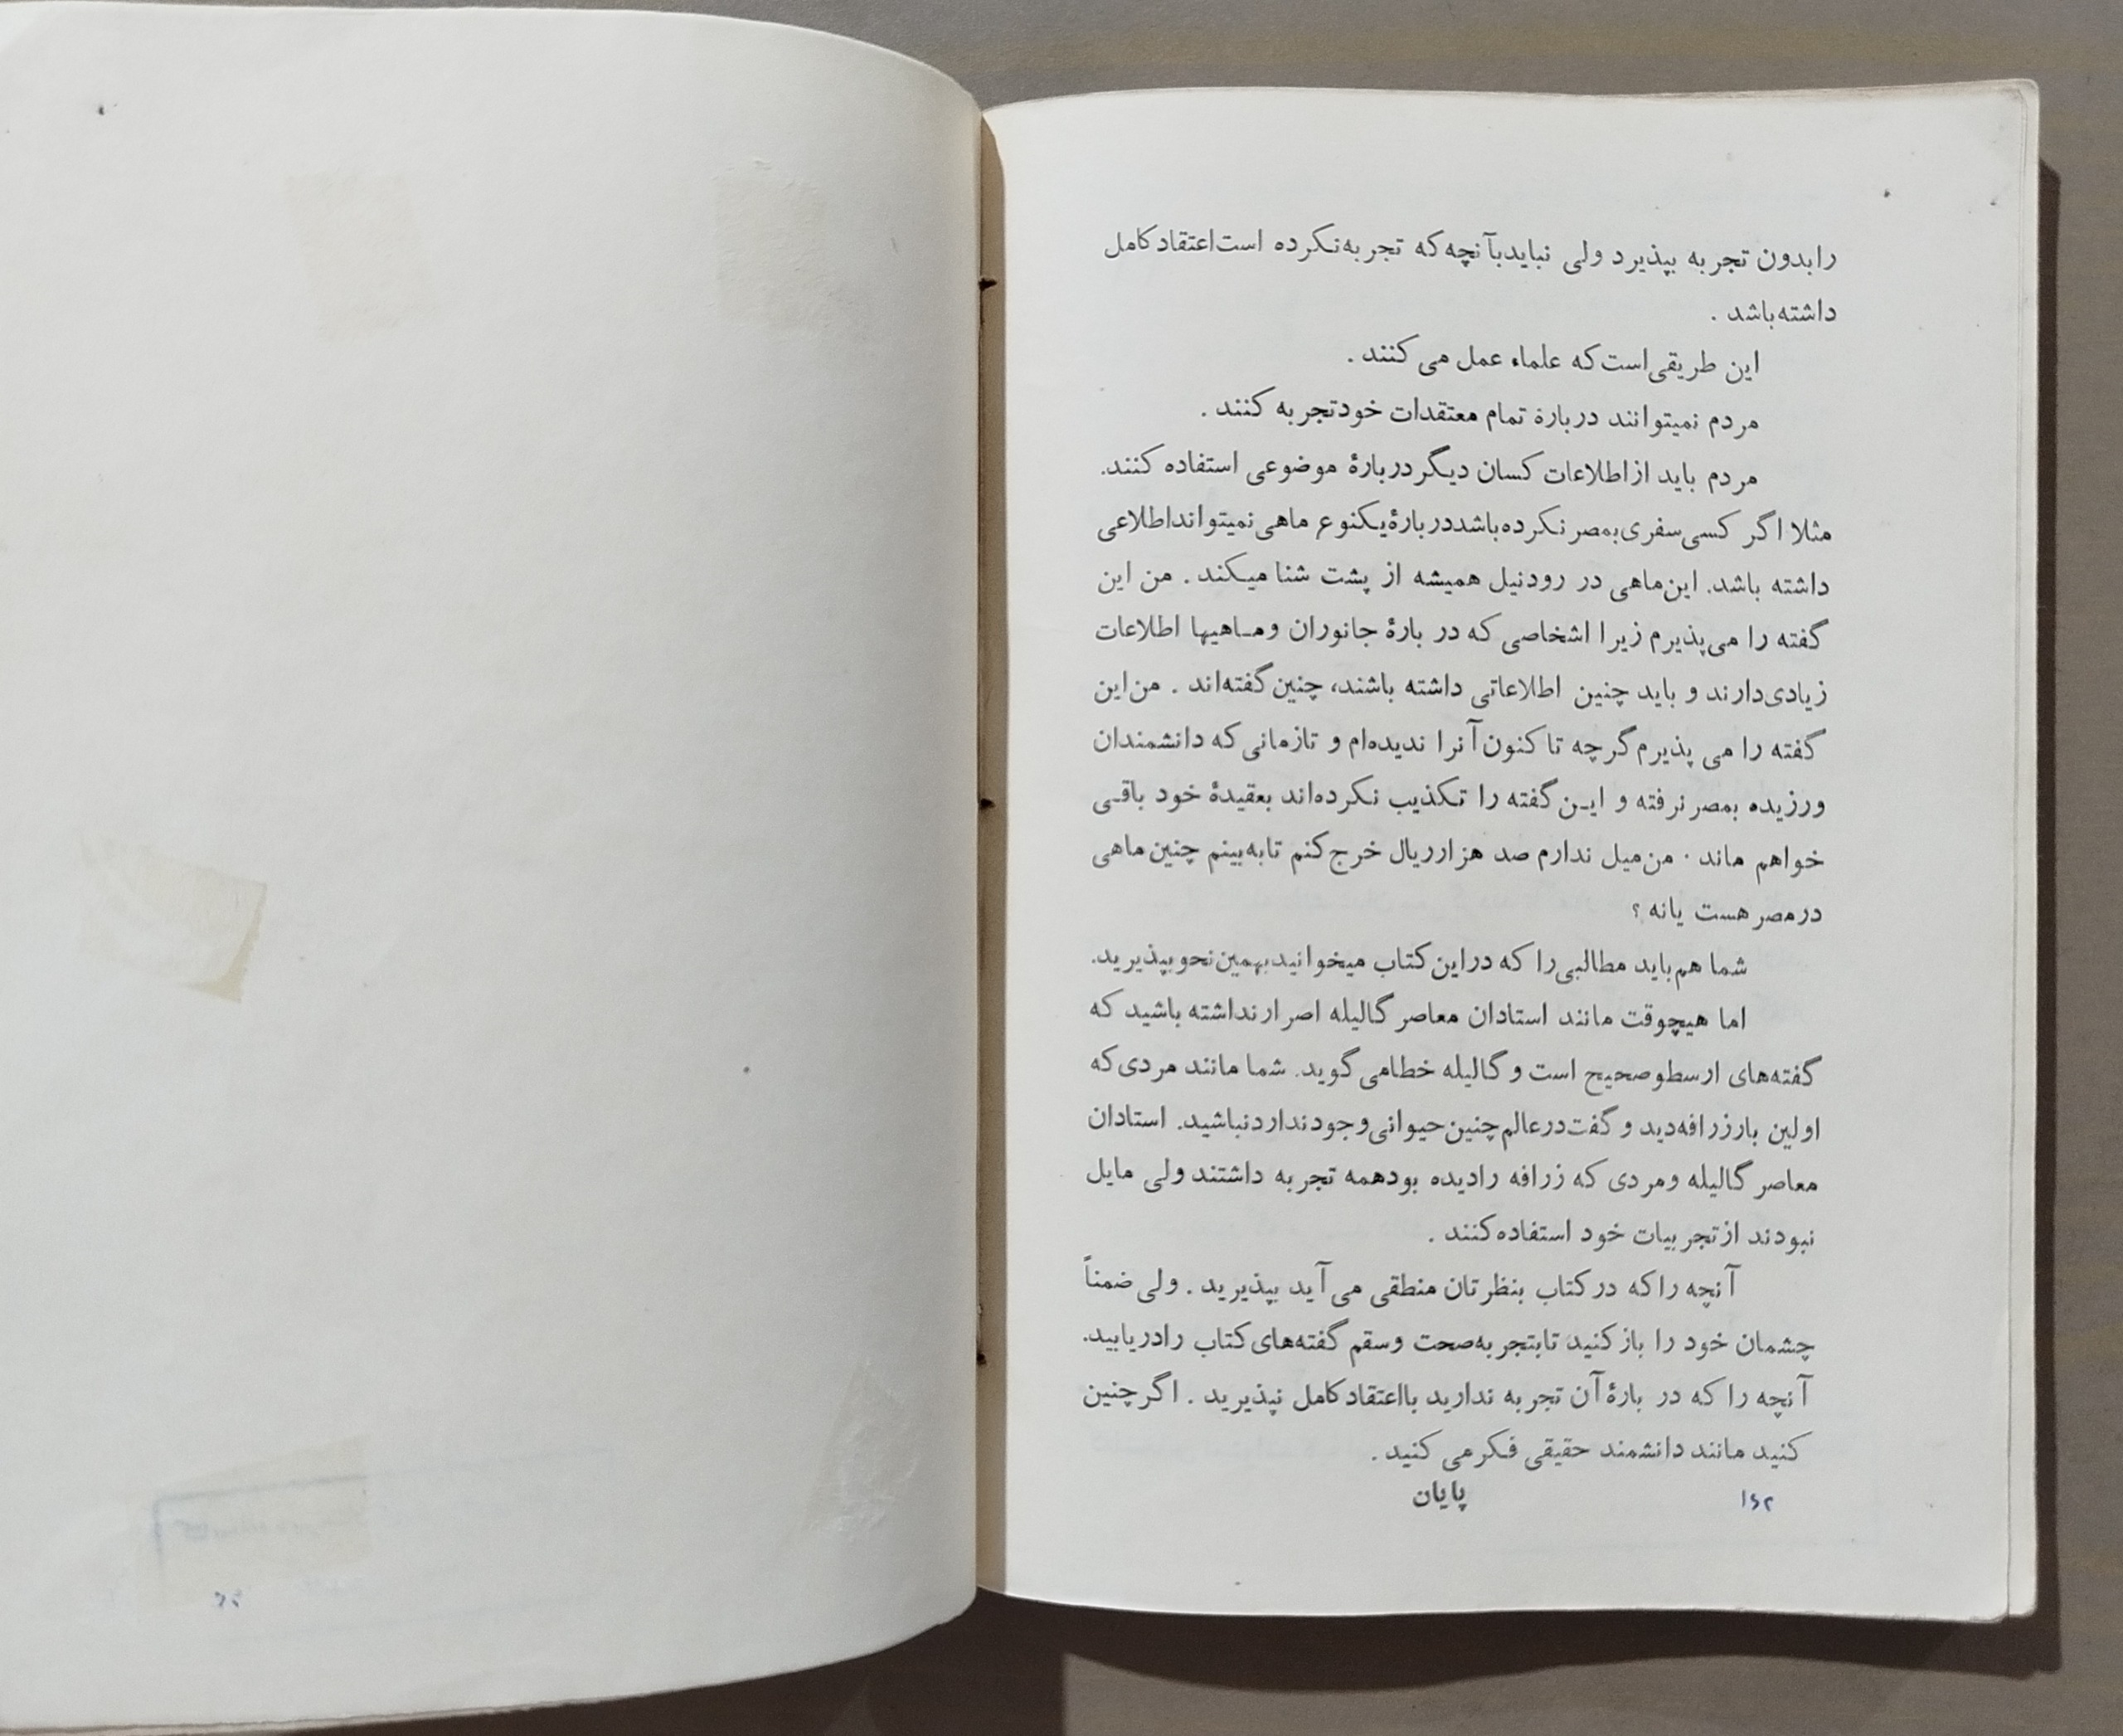 را بدون تجربه بپذیرد ولی نباید بآنچه که تجربه نکرده است اعتقاد کامل
داشته باشد .
این طریقی است که علماء عمل می کنند .
مردم نمیتوانند دربارۀ تمام معتقدات خود تجربه کنند .
مردم باید از اطلاعات کسان دیگر دربارۀ موضوعی استفاده کنند.
مثلا اگر کسی سفری بمصر نکرده باشد دربارۀ یکنوع ماهی نمیتواند اطلاعی
داشته باشد. این ماهی در رود نیل همیشه از پشت شنا میکند . من این
گفته را می پذیرم زیرا اشخاصی که در بارۀ جانوران و ماهیها اطلاعات
زیادی دارند و باید چنین اطلاعاتی داشته باشند، چنین گفته‌اند . من این
گفته را می پذیرم گرچه تا کنون آنرا ندیده‌ام و تا زمانی که دانشمندان
ورزیده بمصر نرفته و این گفته را تکذیب نکرده‌اند بعقیدۀ خود باقی
خواهم ماند . من میل ندارم صد هزار ریال خرج کنم تا به بینم چنین ماهی
در مصر هست یا نه ؟
شما هم باید مطالبی را که در این کتاب میخوانید بهمین نحو بپذیرید.
اما هیچوقت مانند استادان معاصر گالیله اصرار نداشته باشید که
گفته‌های ارسطو صحیح است و گالیله خطا می گوید. شما مانند مردی که
اولین بار زرافه دید و گفت در عالم چنین حیوانی وجود ندارد نباشید. استادان
معاصر گالیله و مردی که زرافه را دیده بود همه تجربه داشتند ولی مایل
نبودند از تجربیات خود استفاده کنند .
آنچه را که در کتاب بنظرتان منطقی می آید بپذیرید . ولی ضمناً
چشمان خود را باز کنید تا بتجربه صحت و سقم گفته‌های کتاب را دریابید.
آنچه را که در بارۀ آن تجربه ندارید با اعتقاد کامل نپذیرید . اگر چنین
کنید مانند دانشمند حقیقی فکر می کنید .
پایان